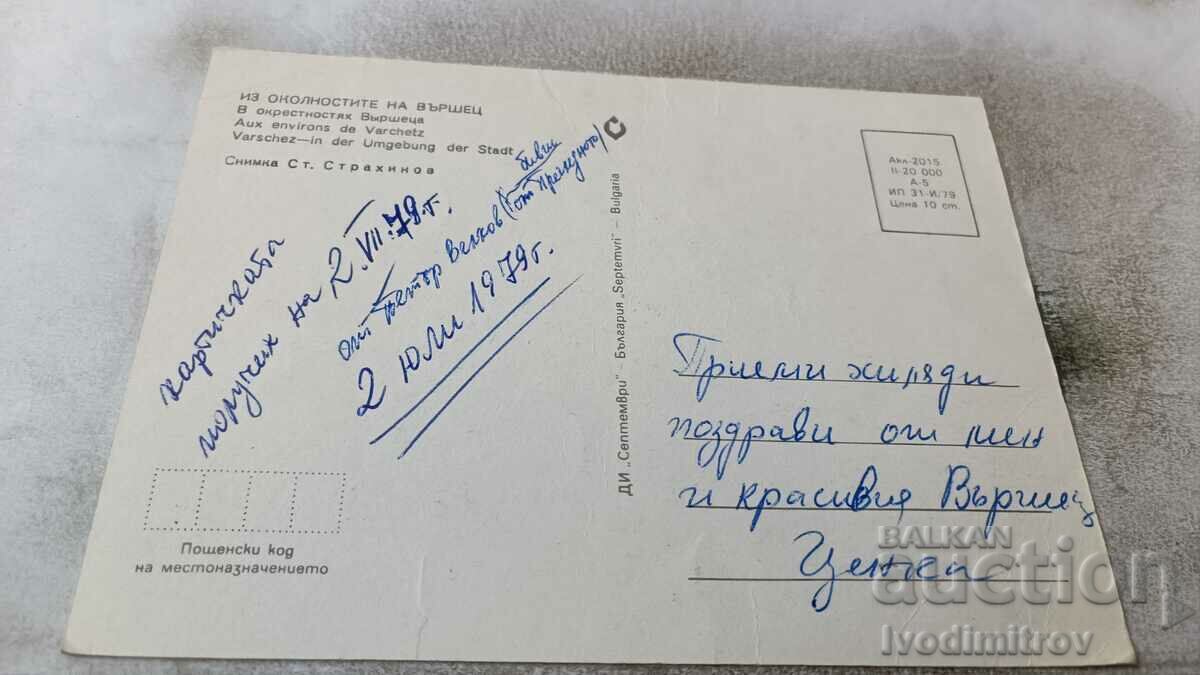 ИЗ ОКОЛНОСТИТЕ НА ВЪРШЕЦ
В окрестностях Выршеца
Aux environs de Varchetz
Varschez—in der Umgebung der Stadt
Снимка Ст. Страхинов
картичката
получих на 2.VII.79г.
от Петър Велков (от
бивш
2 ЮЛИ 1979г.
Пощенски код
на местоназначението
ДИ „Септември" – България „Septemvri" – Bulgaria
Акл-2015
II-20 000
А-5
ИП 31-И/79
Цена 10 ст.
Приеми хиляди
поздрави от мен
и красивия Вършец
Ценка
BALKAN
auction
Ivodimitrov